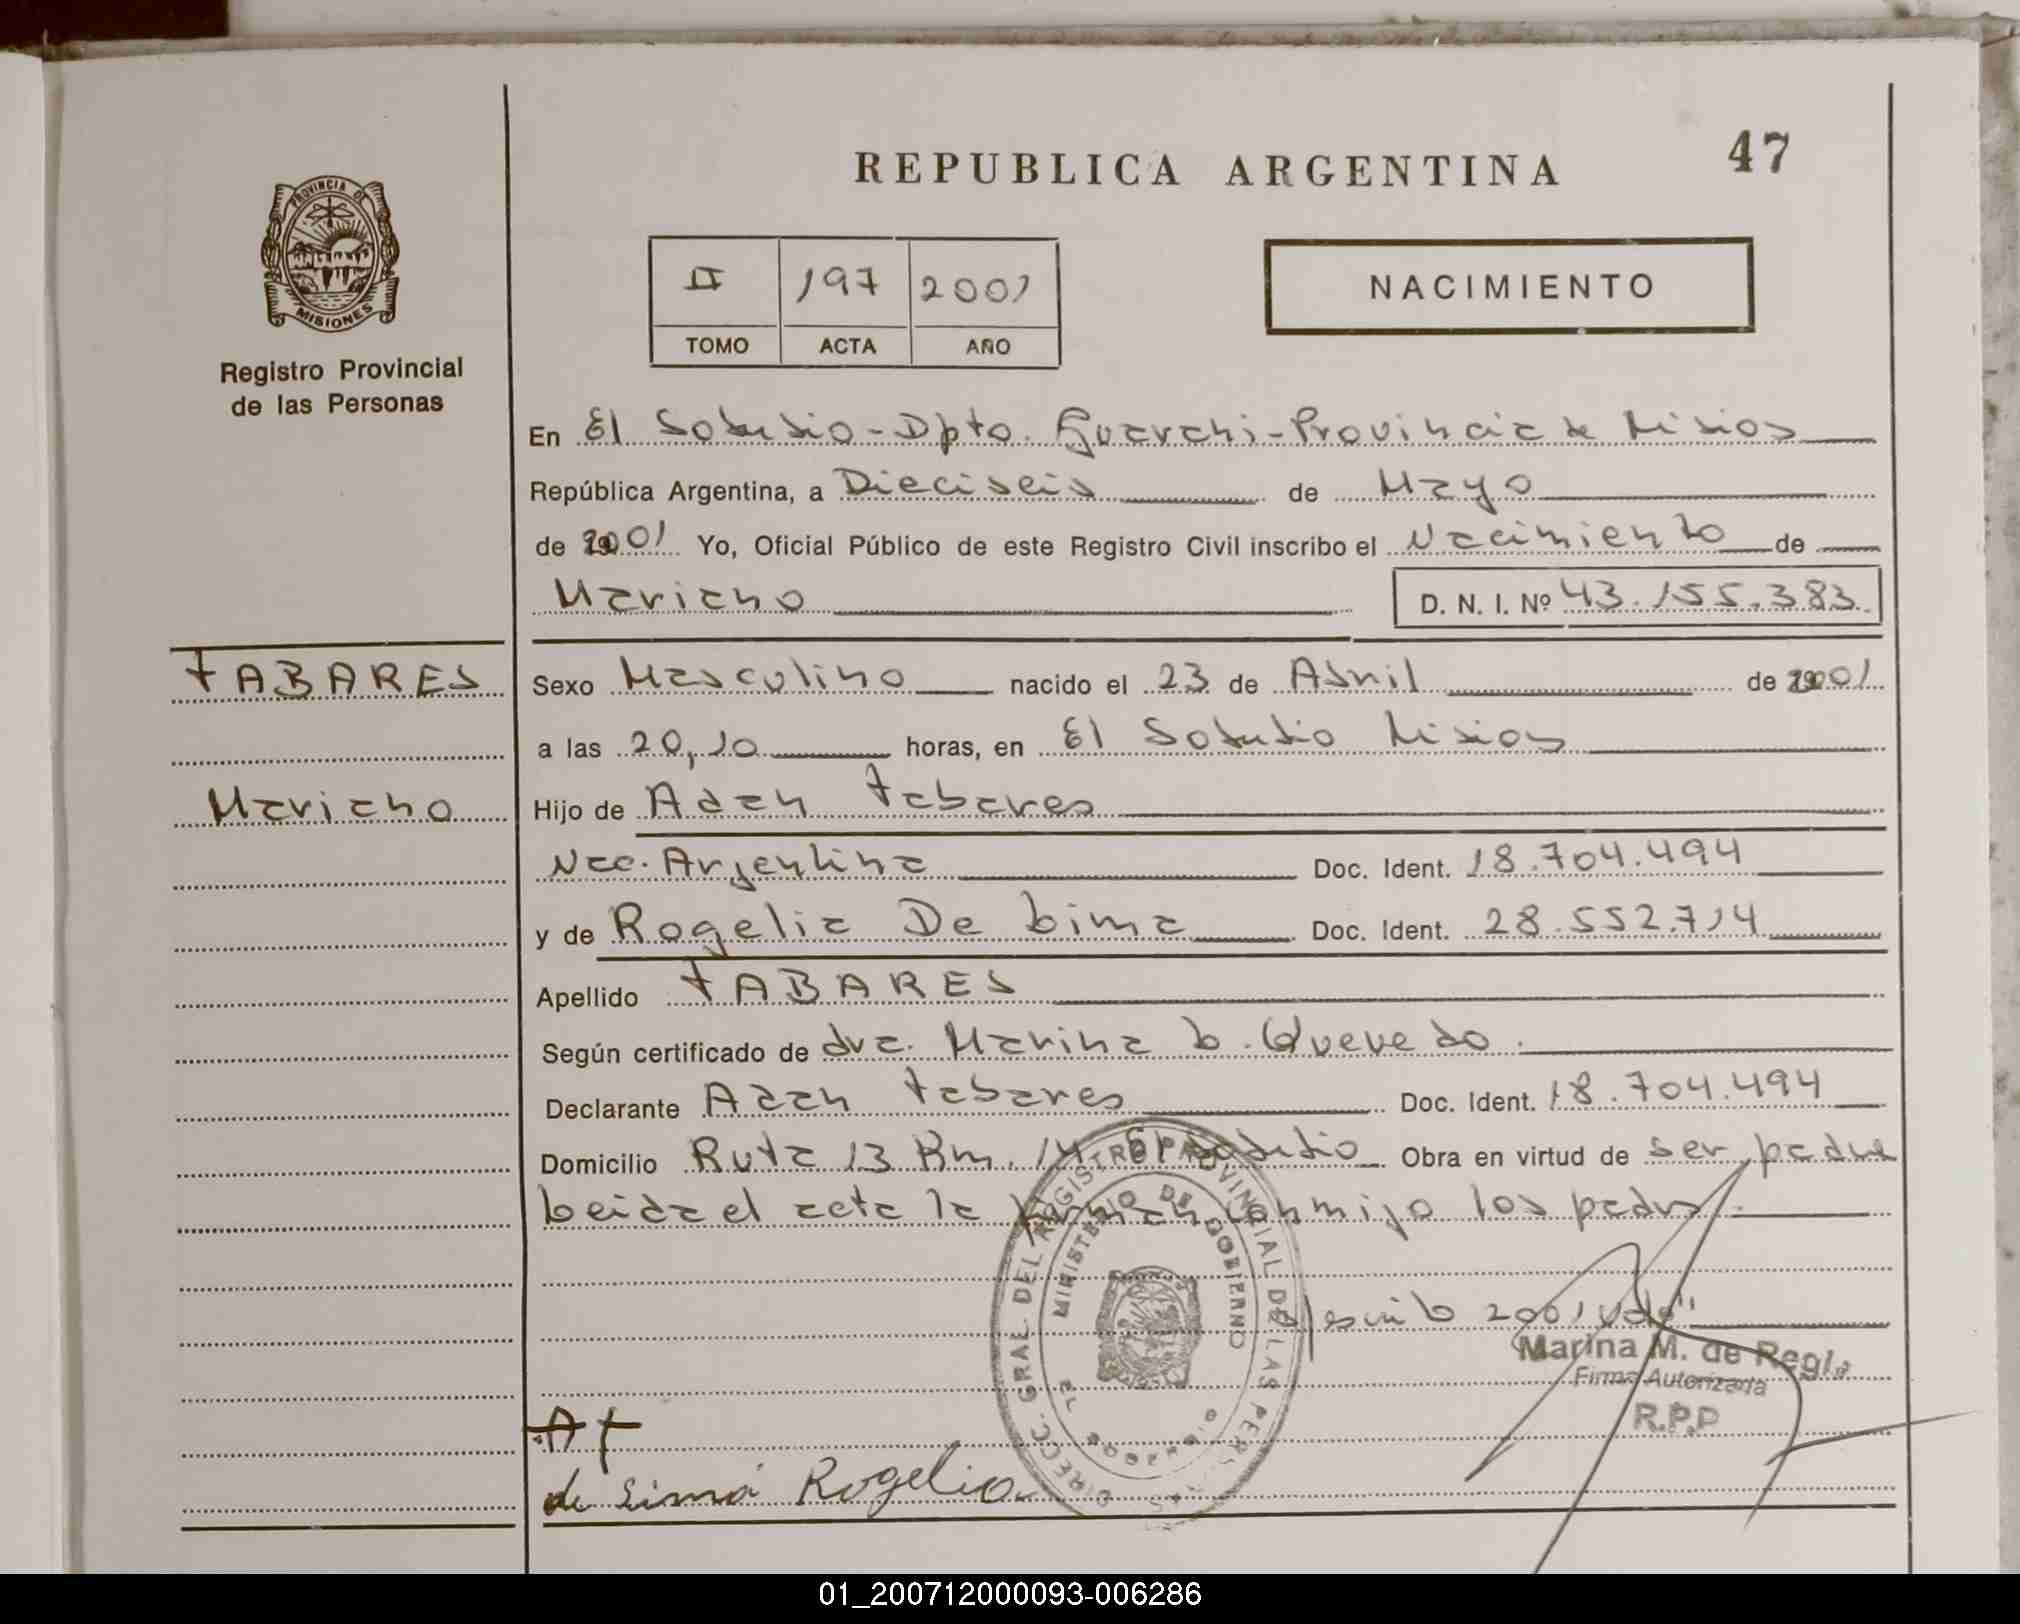 47
REPUBLICA ARGENTINA
PROVINCIA DE
MISIONES
Registro Provincial
de las Personas
II 197 2001
TOMO ACTA AÑO
NACIMIENTO
En El Soberbio - Dpto. Guarani - Provincia de Misiones
República Argentina, a Dieciseis de Mayo
de 2001 Yo, Oficial Público de este Registro Civil inscribo el Nacimiento de
Mariano D. N. I. Nº 43.155.383
TABARES
Sexo Masculino nacido el 23 de Abril de 2001
a las 20,10 horas, en El Soberbio Misiones
Mariano
Hijo de Adan Tabares
Nac. Argentina Doc. Ident. 18.704.494
y de Rogelia De Lima Doc. Ident. 28.552.714
Apellido TABARES
Según certificado de dra. Marina L. Quevedo
Declarante Adan Tabares Doc. Ident. 18.704.494
Domicilio Ruta 13 Km. 14 El Soberbio Obra en virtud de ser padre
Leida el acta la firman conmigo los padres
2001 vale"
DIRECC. GRAL DEL REGISTRO PROVINCIAL DE LAS PERSONAS
MINISTERIO DE GOBIERNO
Marina M. de Regla
Firma Autorizada
R.P.P
A T
de Lima Rogelia
01_200712000093-006286